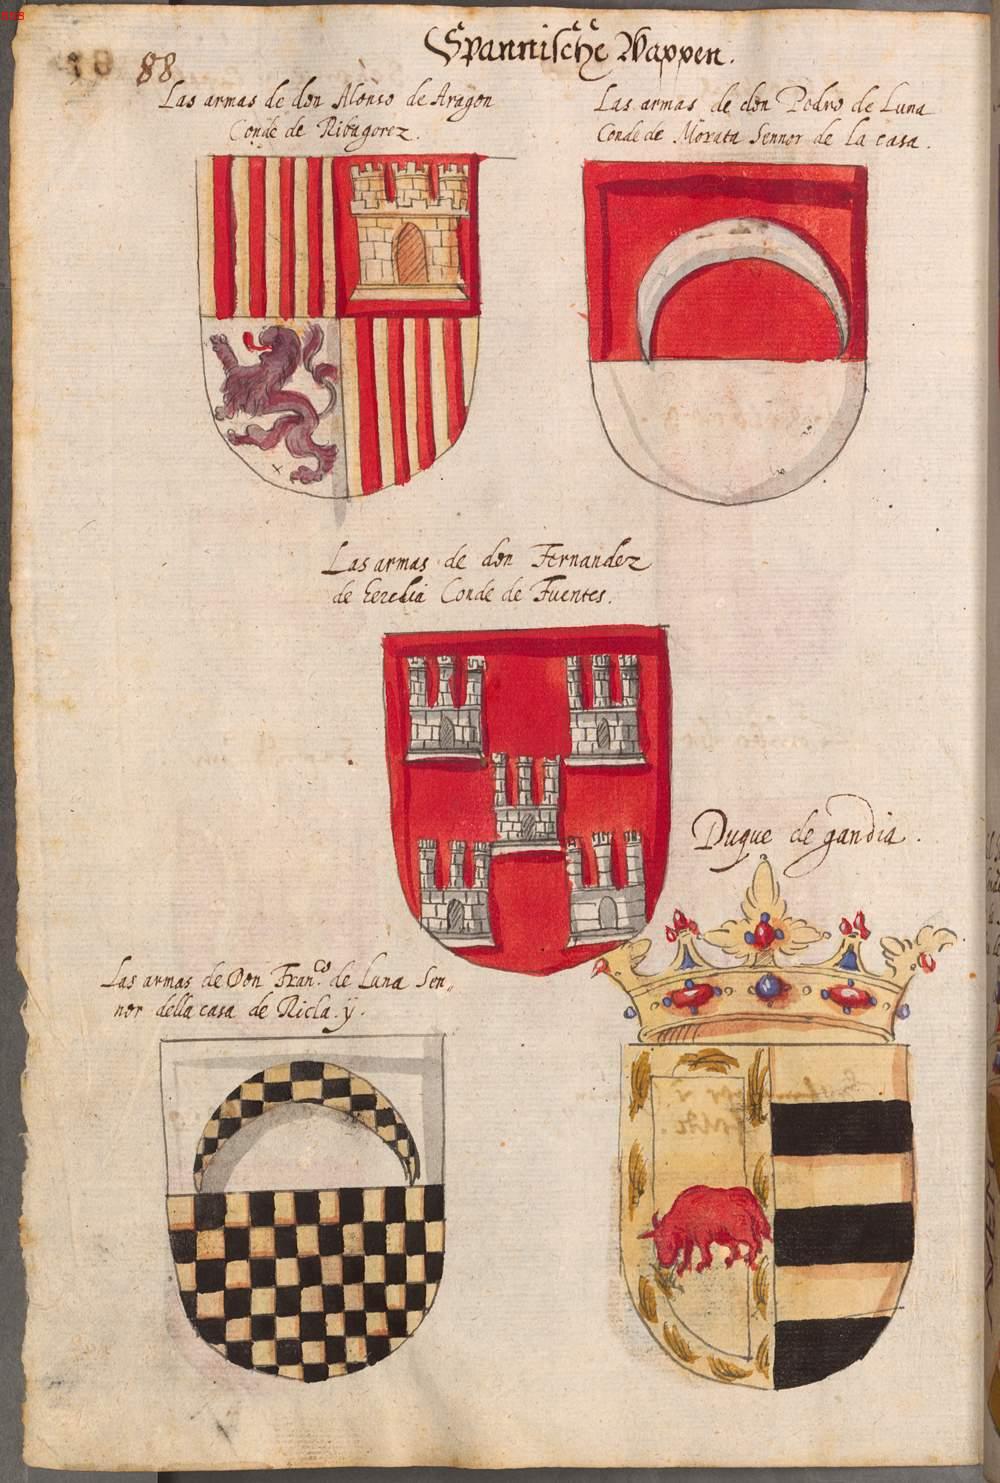 Spannische Wappen.
88
Las armas de don Alonso de Aragon
Conde de Ribagorez.
Las armas de don Pedro de Luna
Conde de Morata Sennor de la casa.
Las armas de don Fernandez
de Conde de Fuentes.
Duque de gandia.
Las armas de Don Fran.co de Luna Sen„
nor della casa de Ricla. ÿ.